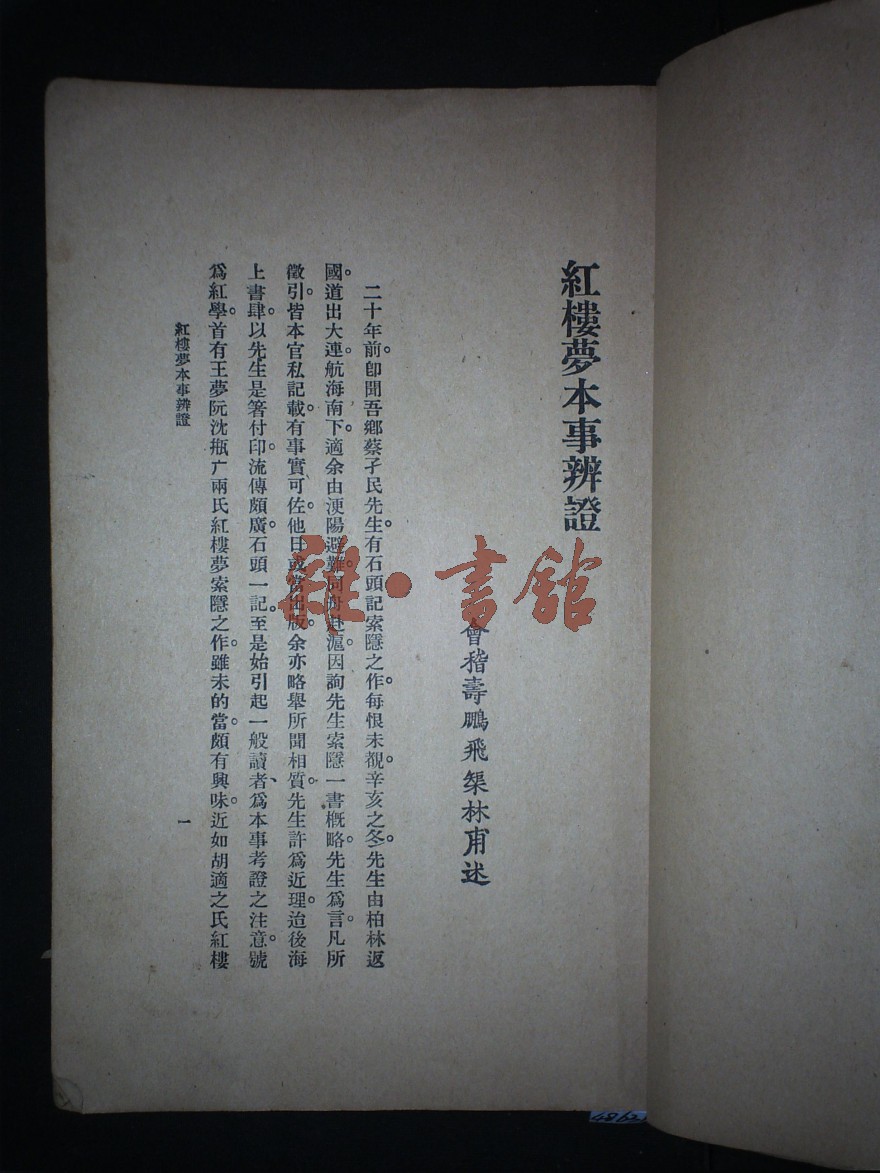 紅樓夢本事辨證
會稽壽鵬飛榘林甫述
二十年前。卽聞吾鄉蔡孑民先生。有石頭記索隱之作。每恨未覩。辛亥之冬。先生由柏林返
國。道出大連。航海南下。適余由溭陽避難。同舟赴滬。因詢先生索隱一書概略。先生爲言。凡所
徵引。皆本官私記載。有事實可佐。他日或當出版。余亦略舉所聞相質。先生許爲近理。迨後海
上書肆。以先生是箸付印。流傳頗廣。石頭一記。至是始引起一般讀者、爲本事考證之注意。號
爲紅學。首有王夢阮沈瓶广兩氏紅樓夢索隱之作。雖未的當。頗有興味。近如胡適之氏紅樓
紅樓夢本事辨證
一
雜·書館
4862